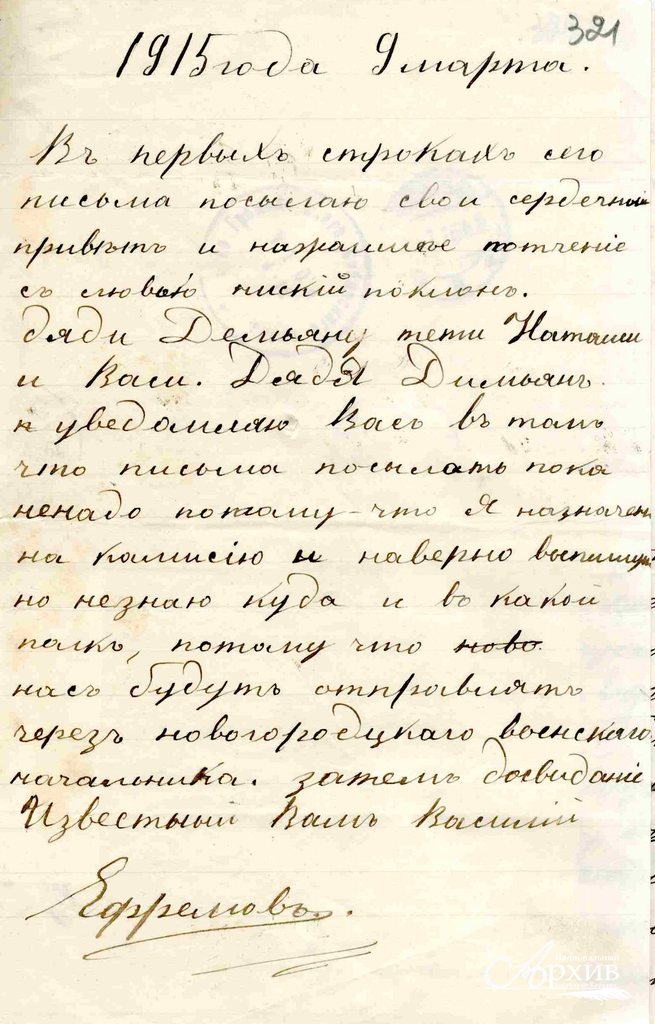 321
1915 года 9 марта.
Въ первыхъ строкахъ сего
письма посылаю свои сердечный
привѣтъ и
съ любовью нискій поклонъ.
дяди Демьяну тети Наташи
и Васи. Дядя Димьянъ
уведомляю Васъ въ томъ
что письма посылать пока
ненадо потому-что Я назначен
на комисію и наверно
но незнаю куда и въ какой
полкъ, потому что ново
насъ будутъ отправлять
черезъ новогородцкаго воєнскаго
начальника. затемъ досвиданіе
Известный Вамъ Василий
Ефремовъ.
Архив